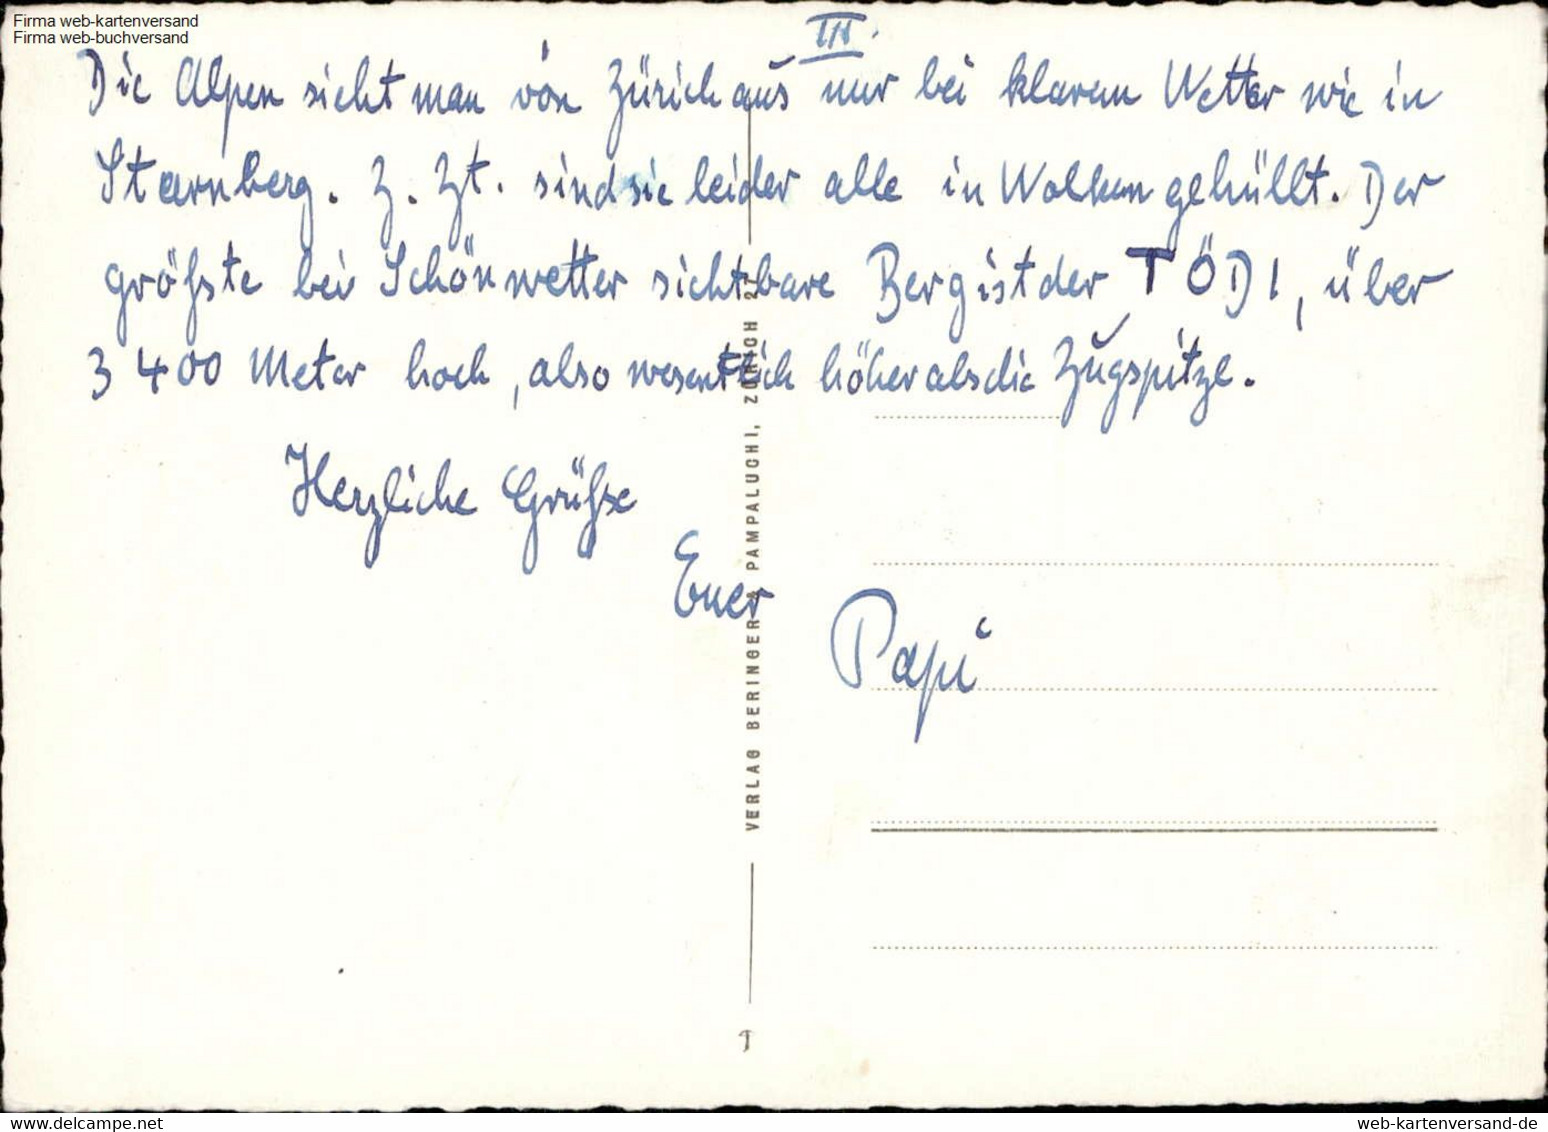 Firma web-kartenversand
Firma web-buchversand
III.
Die Alpen sieht man von Zürich aus nur bei klarem Wetter wie in
Starnberg. Z. Zt. sind sie leider alle in Wolken gehüllt. Der
größte bei Schönwetter sichtbare Berg ist der TÖDI, über
3400 Meter hoch, also wesentlich höher als die Zugspitze.
Herzliche Grüße
Euer
Papi
VERLAG BERINGER & PAMPALUCHI, ZÜRICH 27
web-kartenversand-de
web-kartenversand-de